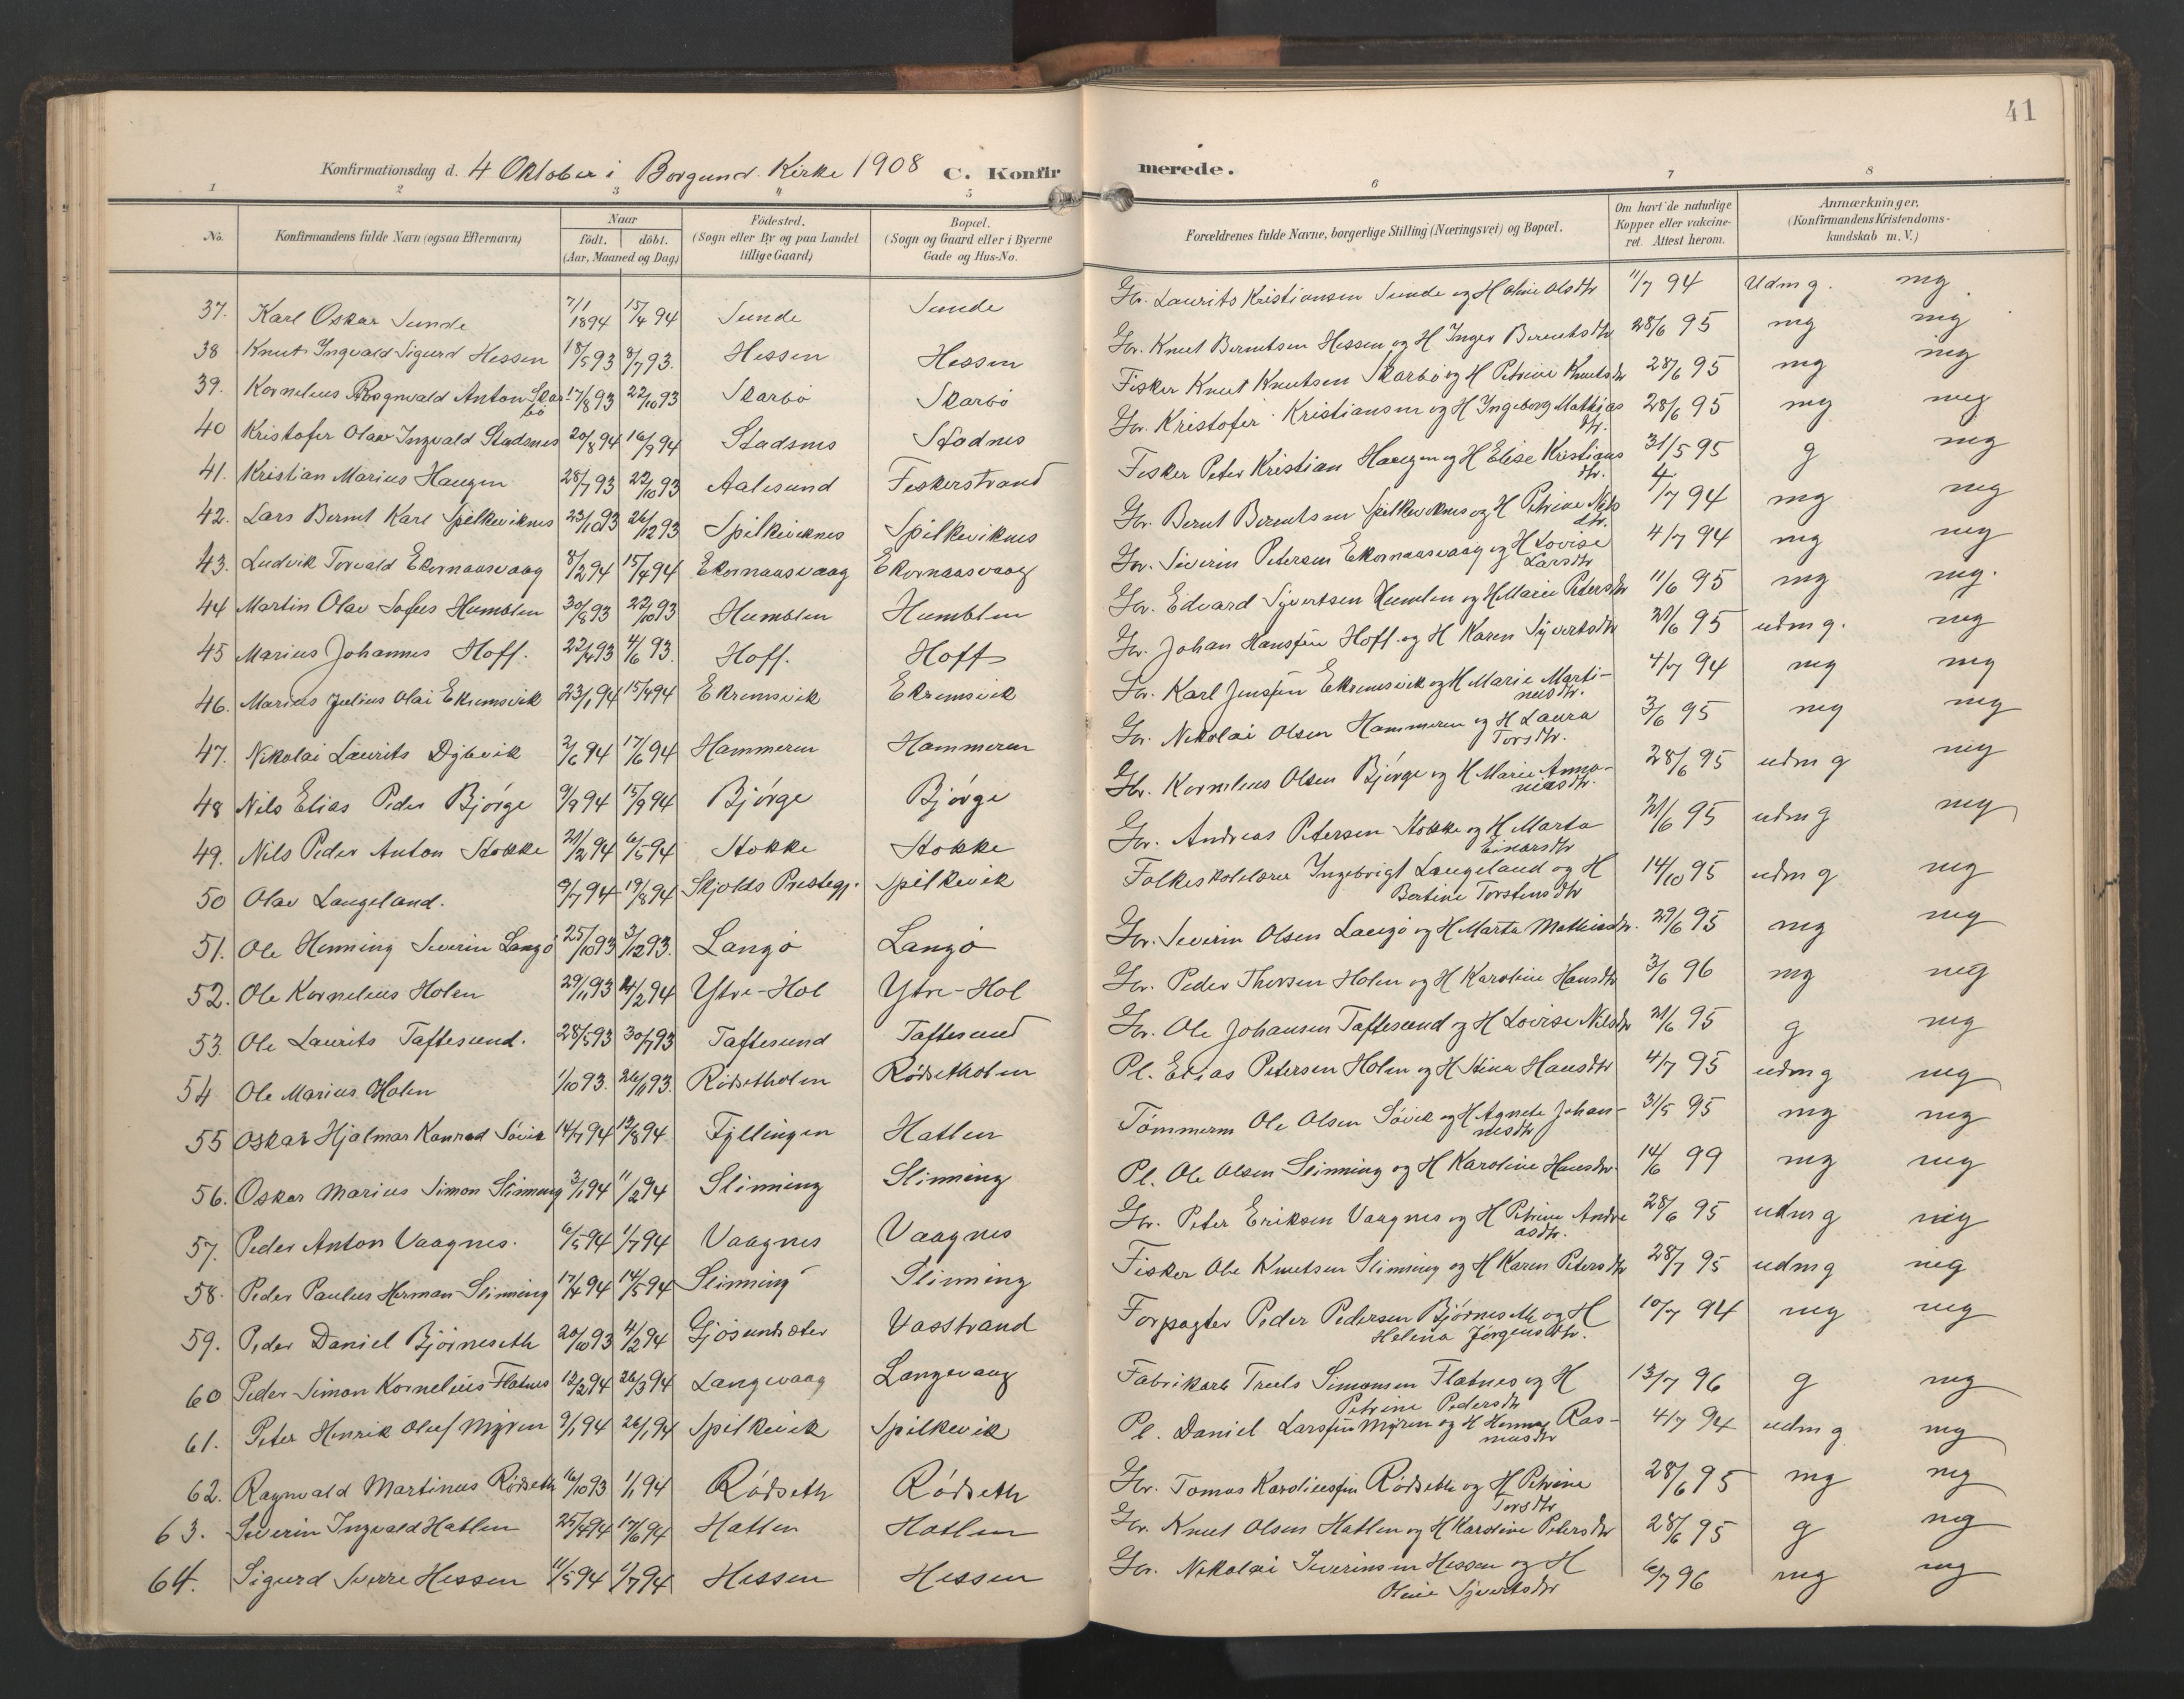 41
Konfirmationsdag d. 4 Oktober i Borgund Kirke 1908 C. Konfirmerede.
1 2 3 4 5 6 7 8
No. Konfirmandens fulde Navn (ogsaa Efternavn) Naar födt. döbt. (Aar, Maaned og Dag) Födested. (Sogn eller By og paa Landet tillige Gaard) Bopæl. (Sogn og Gaard eller i Byerne Gade og Hus-No. Forældrenes fulde Navne, borgerlige Stilling (Næringsvei) og Bopæl. Om havt de naturlige Kopper eller vakcineret. Attest herom. Anmærkninger. (Konfirmandens Kristendomskundskab m. V.)
37. Karl Oskar Sunde 7/1 1894 15/4 94 Sunde Sunde Gbr. Laurits Kristiansen Sunde og H Oline Olsdtr 11/7 94 Udmg. mg.
38 Knut Ingvald Sigurd Hessen 18/5 93 8/7 93. Hessen Hessen Gbr. Knut Berntsen Hessen og H Inger Berntsdtr 28/6 95 mg mg
39. Kornelius Rognvald Anton Skarbö 17/8 93 22/10 93 Skarbö Skarbö Fisker Knut Knutsen Skarbö og H Petrine Knutsdtr 28/6 95 mg mg
40 Kristofer Olav Ingvald Stadsnes 20/8 94 16/9 94 Stadsnes Stadnes Gbr. Kristofer Kristiansen og H Ingeborg Mathiasdtr. 28/6 95 mg mg
41. Kristian Marius Haugen 28/7 93 22/10 93 Aalesund Fiskerstrand Fisker Peter Kristian Haugen og H Elise Kristiansdtr. 31/5 95 g mg
42. Lars Bernt Karl Spilkeviknes 23/10 93 26/12 93 Spilkeviknes Spilkeviknes Gbr. Bernt Berntsen Spilkeviknes og H Petrine Nilsdtr. 4/7 94 mg mg
43. Ludvik Torvald Ekornaasvaag 8/2 94 15/4 94 Ekornaasvaag Ekornaasvaag Gbr. Severin Petersen Ekornaasvaag og H Lovise Larsdtr 4/7 94 mg mg
44 Martin Olav Sofus Humblen 30/8 93 22/10 93 Humblen Humblen Gbr. Edvard Syvertsen Humlen og H Marie Petersdtr 11/6 95 mg mg.
45 Marius Johannes Hoff. 22/4 93 4/6 93. Hoff. Hoff Gbr. Johan Hansen Hoff og H Karen Syvertsdtr 21/6 95 udmg. mg
46. Marius Julius Olai Ekremsvik 23/1 94 15/4 94 Ekremsvik Ekremsvik Gbr. Karl Jensen Ekremsvik og H Marie Martinusdtr. 4/7 94 mg mg
47. Nikolai Laurits Dybvik 2/6 94 17/6 94 Hammeren Hammeren Gbr. Nikolai Olsen Hammeren og H Laura Torsdtr. 3/6 95 mg mg
48 Nils Elias Peder Bjórge 9/9 94 15/9 94 Bjórge Bjórge Gbr. Kornelius Olsen Bjórge og H Marie Annaniasdtr. 28/6 95 udmg mg
49. Nils Peder Anton Stokke 21/2 94 6/5 94 Stokke Stokke Gbr. Andreas Petersen Stokke og H Marta Einarsdtr 21/6 95 udmg mg
50 Olav Langeland. 9/7 94 19/8 94 Skjolds Prestegj. Spilkevik Folkeskolelærer Ingebrigt Langeland og H Bertine Torstensdtr 14/10 95 udmg mg
51. Ole Henning Severin Langö 25/10 93 3/12 93. Langö Langö Gbr. Severin Olsen Langö og H Marta Mathiasdtr. 29/6 95 mg mg
52. Ole Kornelius Holen 29/11 93 4/2 94 Ytre-Hol Ytre-Hol Gbr. Peder Thorsen Holen og H Karoline Hansdtr 3/6 96 mg mg
53. Ole Laurits Taftesund. 28/5 93 30/7 93 Taftesund Taftesund Gbr. Ole Johansen Taftesund og H Lovise Nilsdtr 21/6 95 g mg
54 Ole Marius Holen 1/10 93. 26/11 93. Rödsetholen Rödsetholen Pl. Elias Petersen Holen og H Stina Hansdtr 4/7 95 udmg mg
55 Oskar Hjalmar Konrad Sövik 14/7 94 12/8 94 Fyllingen Hatlen Tömmerm Ole Olsen Sövik og H Agnete Johannesdtr 31/5 95 mg mg
56. Oskar Marius Simon Slinning 3/1 94 11/2 94 Slinning Slinning Pl. Ole Olsen Slinning og H Karoline Hansdtr 14/6 99 mg mg
57. Peder Anton Vaagnes. 6/5 94 1/7 94 Vaagnes Vaagnes Gbr. Peter Eriksen Vaagnes og H Petrine Andreasdtr. 28/6 95 udmg mg
58. Peder Paulus Herman Slinning 17/4 94 14/5 94 Slinning Slinning Fisker Ole Knutsen Slinning og H Karen Petersdtr 28/7 95 udmg mg
59. Peder Daniel Bjórneseth 20/10 93 4/2 94 Gjösundsæter Vasstrand Forpagter Peder Pedersen Bjórneseth og H Helena Jörgensdtr. 10/7 94 mg mg
60 Peder Simon Kornelius Flatnes 12/2 94 26/3 94 Langevaag Langevaag Fabrikarb Truls Simonsen Flatnes og H Petrine Pedersdtr 13/7 96 g mg
61. Peter Henrik Oluf Myren 9/1 94 26/1 94 Spilkevik Spilkevik Pl. Daniel Larssen Myren og H Hanna Rasmusdtr 4/7 94 udmg mg
62. Ragnvald Martinus Rödseth 16/10 93 1/1 94 Rödseth Rödseth Gbr. Tomas Karolinssen Rödseth og H Petrine Torsdtr 28/6 95 mg mg
63. Severin Ingvald Hatlen 25/4 94 17/6 94 Hatlen Hatlen Gbr. Knut Olsen Hatlen og H Karoline Petersdtr 28/6 95 g mg
64. Sigurd Sverre Hessen 11/5 94 1/7 94 Hessen Hessen Gbr. Nikolai Severinsen Hessen og H Oline Syvertsdtr 6/7 96 mg mg